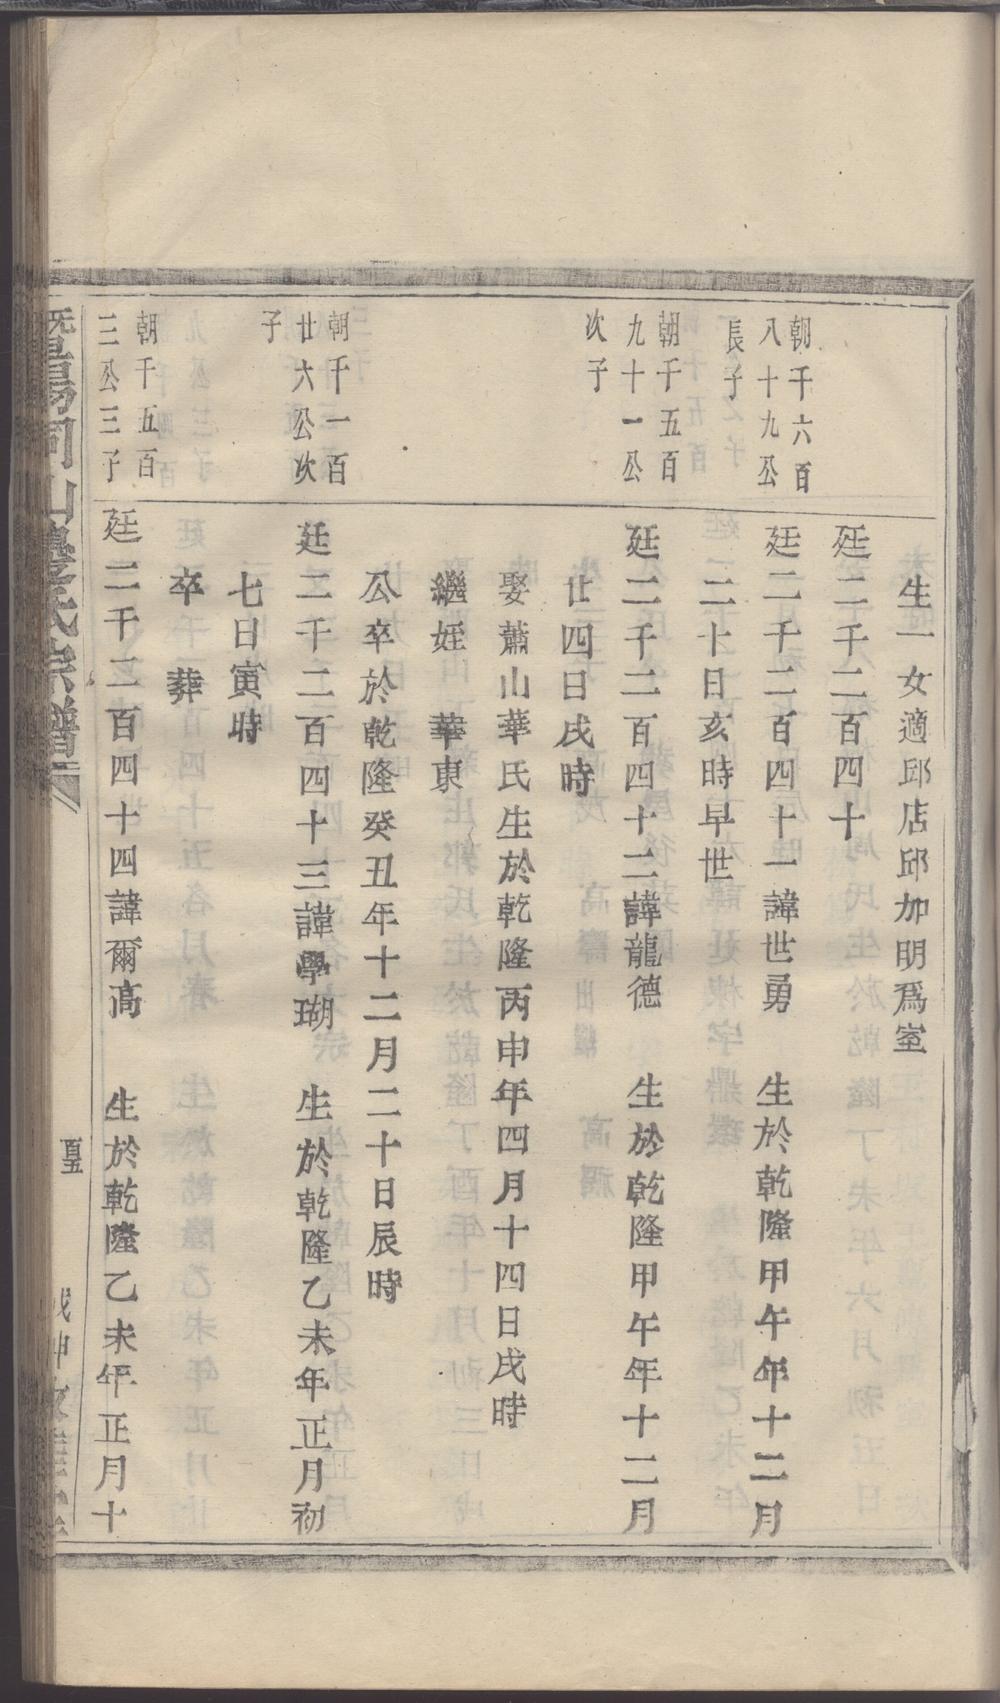 生一女適邱店邱加明爲室
廷二千二百四十
朝千六百
八十九公
長子
廷二千二百四十一諱世勇 生於乾隆甲午年十二月
二十日亥時早世
朝千五百
九十一公
次子
廷二千二百四十二諱龍德 生於乾隆甲午年十二月
廿四日戌時
娶蕭山華氏生於乾隆丙申年四月十四日戌時
繼姪 華東
公卒於乾隆癸丑年十二月二十日辰時
朝千一百
廿六公次
子
廷二千二百四十三諱學瑚 生於乾隆乙未年正月初
七日寅時
卒 葬
朝千五百
三公三子
廷二千二百四十四諱爾高 生於乾隆乙未年正月十
暨陽同山邊氏宗譜